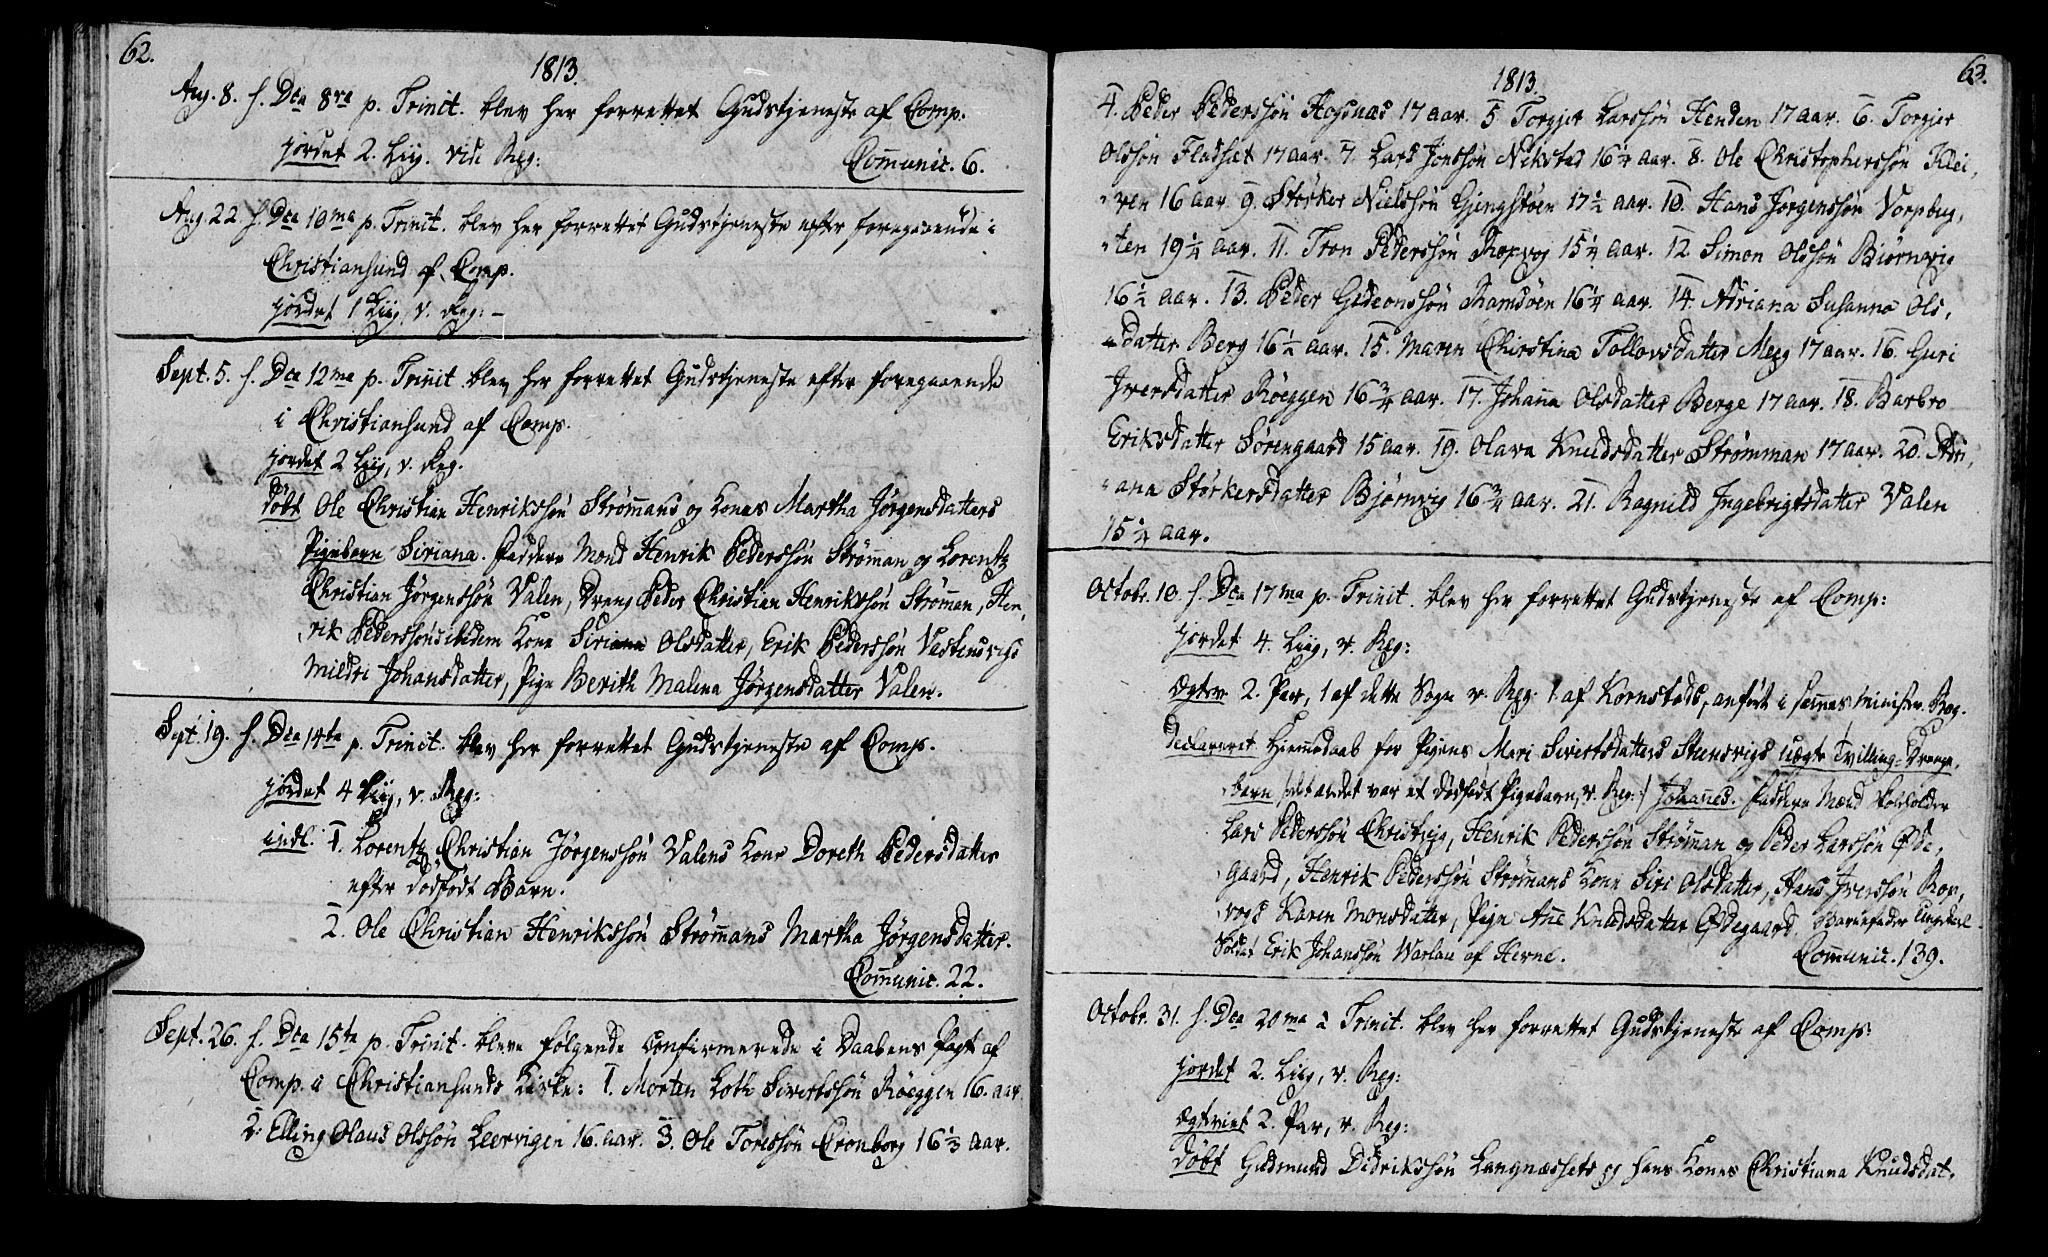 62.
1813.
Aug. 8. s. Dca 8va p. Trinit. blev her forrettet Gudstjeneste af Comp:
jordet 2. Liig. vide Reg:
Com̄unic. 6.
Aug. 22. s. Dca 10ma p. Trinit. blev her forrettet Gudstjeneste efter foregaaende i
Christiansund af Comp.
jordet 1 Liig, v. Reg: –
Sept. 5. s. Dca 12ma p. Trinit. blev her forrettet Gudstjeneste efter foregaaende
i Christiansund af Comp.
jordet 2 Liig, v. Reg.
døbt Ole Christian Henrikssøn Strøm̄ans og Kones Martha Jørgensdatters
Pigebarn Siriana. Faddere Mænd Henrik Pederssøn Strøm̄an og Lorentz
Christian Jørgenssøn Valen, Dreng Peder Christian Henrikssøn Strøm̄an, Hen,
,rik Pederssøns ibidem Kone Siriana Olsdatter, Erik Pederssøn Vastensvigs
Mildri Johansdatter, Pige Berith Malena Jørgensdatter Valen.
Sept. 19. s. Dca 14ta p. Trinit. blev her forrettet Gudstjeneste af Comp.
jordet 4 Liig, v. Reg:
indl. 1. Lorentz Christian Jørgenssøn Valens Kone Doreth Pedersdatter
efter dødfødt Barn.
2. Ole Christian Henrikssøn Strøm̄ans Martha Jørgensdatter.
Com̄unic. 22.
Sept. 26. s. Dca 15ta p. Trinit. bleve følgende confirmerede i Daabens Pagt af
Comp. i Christiansunds Kirke: 1. Morten Loth Sivertssøn Røeggen 16. aar
2. Elling Olaus Olssøn Leervigen 16. aar. 3. Ole Toressøn Cronborg 16 1/3 aar.
63.
1813.
4. Peder Pederssøn Hogsnæs 17 aar. 5 Torgjer Larssøn Henden 17 aar. 6. Torgier
Olssøn Fladset 17 aar. 7. Lars Jonssøn Nikstad 16 1/4 aar. 8. Ole Christopherssøn Klei,
,ven 16 aar 9. Størker Nielssøn Gjengstøen 17 1/2 aar. 10. Hans Jørgenssøn Vorpbug,
,ten 19 1/4 aar. 11. Tron Pederssøn Roxvog 15 1/4 aar. 12 Simon Olssøn Biørnvig
16 1/2 aar. 13. Peder Gideonssøn Ramsøen 16 1/4 aar. 14. Adriana Susanna Ols,
,datter Berg 16 1/2 aar. 15. Maren Chirstina Tollovsdatter Meeg 17 aar. 16. Guri
Iversdatter Røeggen 16 3/4 aar. 17. Johan̄a Olsdatter Berge 17 aar. 18. Barbro
Eriksdatter Sørengaard 15 aar. 19. Olava Knudsdatter Strømman 17 aar. 20. Adri,
,ana Størkersdatter Bjørnvig 16 3/4 aar. 21. Ragnild Ingebrigtsdatter Valen
15 1/4 aar.
Octobr. 10. s. Dca 17ma p. Trinit. blev her forrettet Gudstjeneste af Comp:
jordet 4. Liig, v. Reg:
Ægtev. 2. Par, 1 af dette Sogn v. Reg: 1. af Kornstads, anført i sam̄es Minister. Bog.
declareret Hiemmedaab for Pigens Mari Sivertsdatters Stensvigs uægte Tvilling-Drenge,
,barn /det andet var et dødfødt Pigebarn, v. Reg:/ Johan̄es. Faddere Mænd Skoleholder
Lars Pederssøn Christvig, Henrik Pederssøn Strøm̄an og Peder Larssøn Øde,
,gaard, Henrik Pederssøn Strøm̄ans Kone Siri Olsdatter, Hans Iverssøn Rox,
,vogs Karen Monsdatter, Pige An̄e Knudsdatter Ødegaard. Barnefader Ungekarl
Soldat Erik Johanssøn Warlau af Herne.
Com̄unic. 139.
Octobr. 31. s. Dca 20ma à Trinit. blev her forrettet Gudstjeneste af Comp:
jordet 2. Liig, v. Reg:
Ægteviet 2. Par, v. Reg:
døbt Gudmund Didrikssøn Langnæssets og hans Kones Christiana Knudsdat,